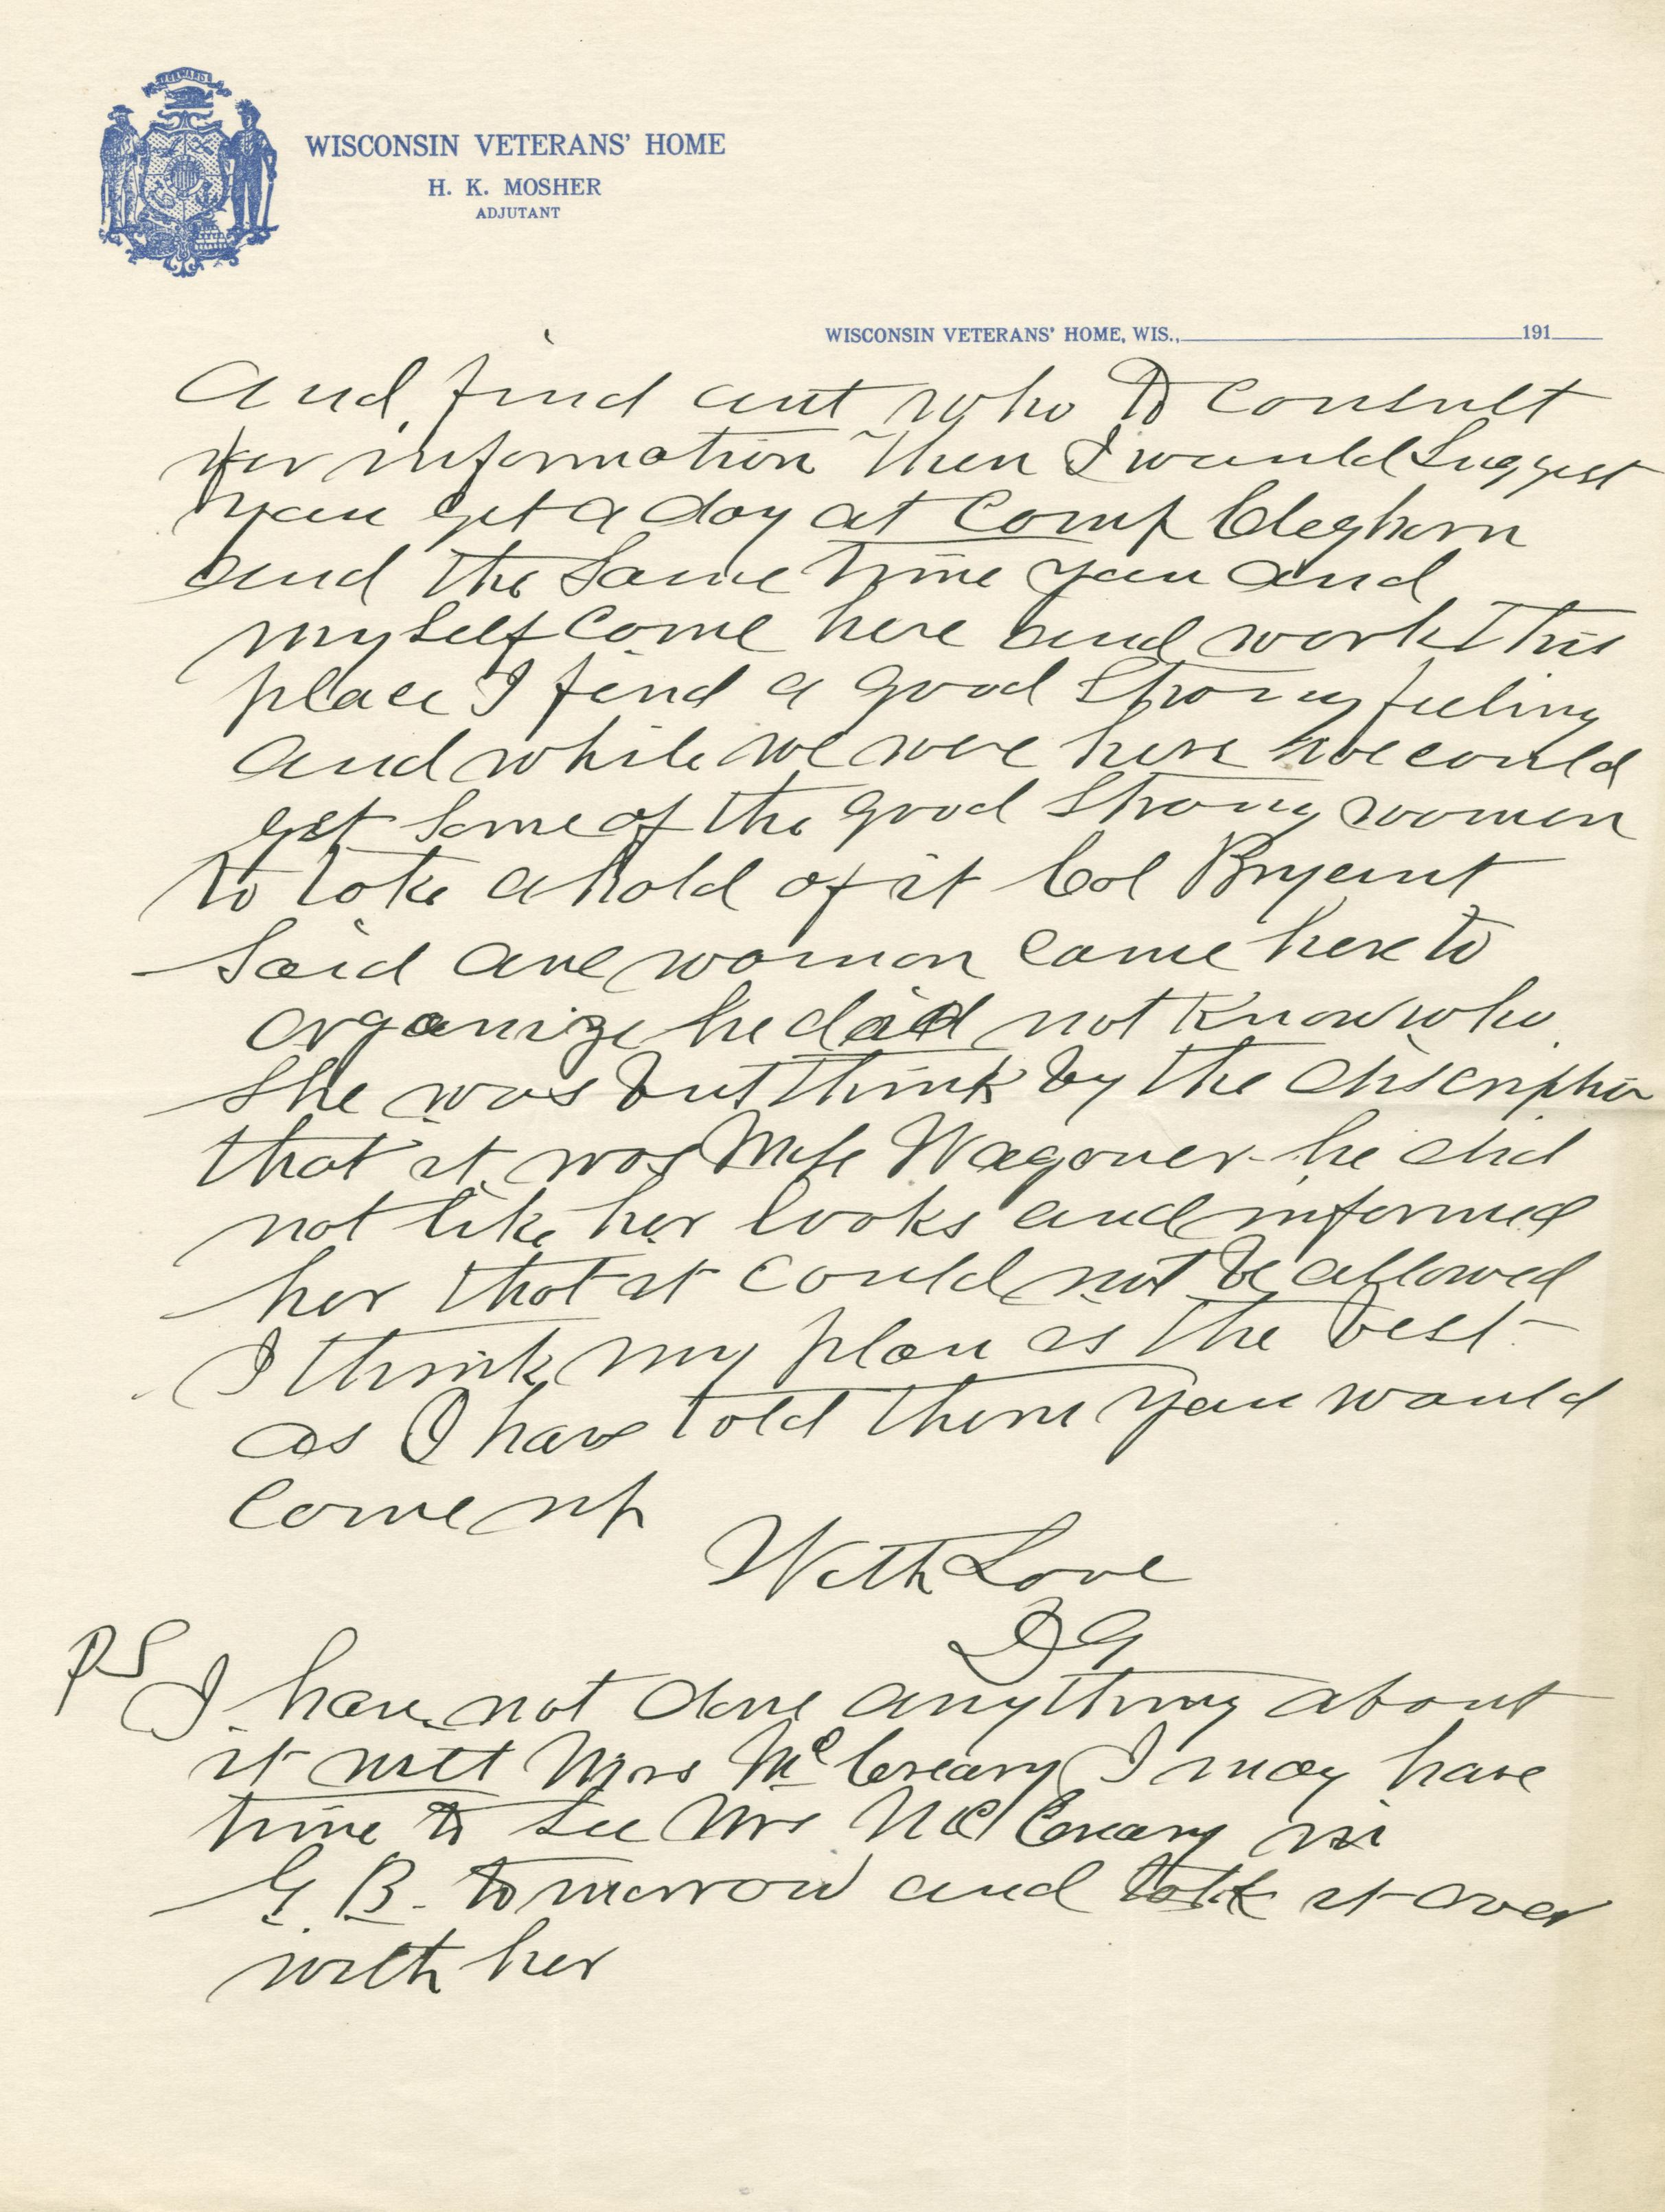 FORWARD
WISCONSIN VETERANS' HOME
H. K. MOSHER
ADJUTANT
WISCONSIN VETERANS' HOME, WIS., 191
and find out who to consult
for information Then I would Suggest
you get a day at Camp Cleghorn
and the Same time you and
myself come here and work this
place I find a good Strong feeling
and while we were here we could
get Some of the good Strong women
to take ahold of it Col Bryant
Said one woman came here to
organize he did not know who
She was but think by the discription
that it was Miss Wagoner he did
not like her looks and informed
her that it could not be allowed
I think my plan is the best
as I have told them you would
come up
With Love
DG
PS
I have not done anything about
it with Mrs McCreary I may have
time to See Mrs McCreary in
G. B. tomorrow and talk it over
with her